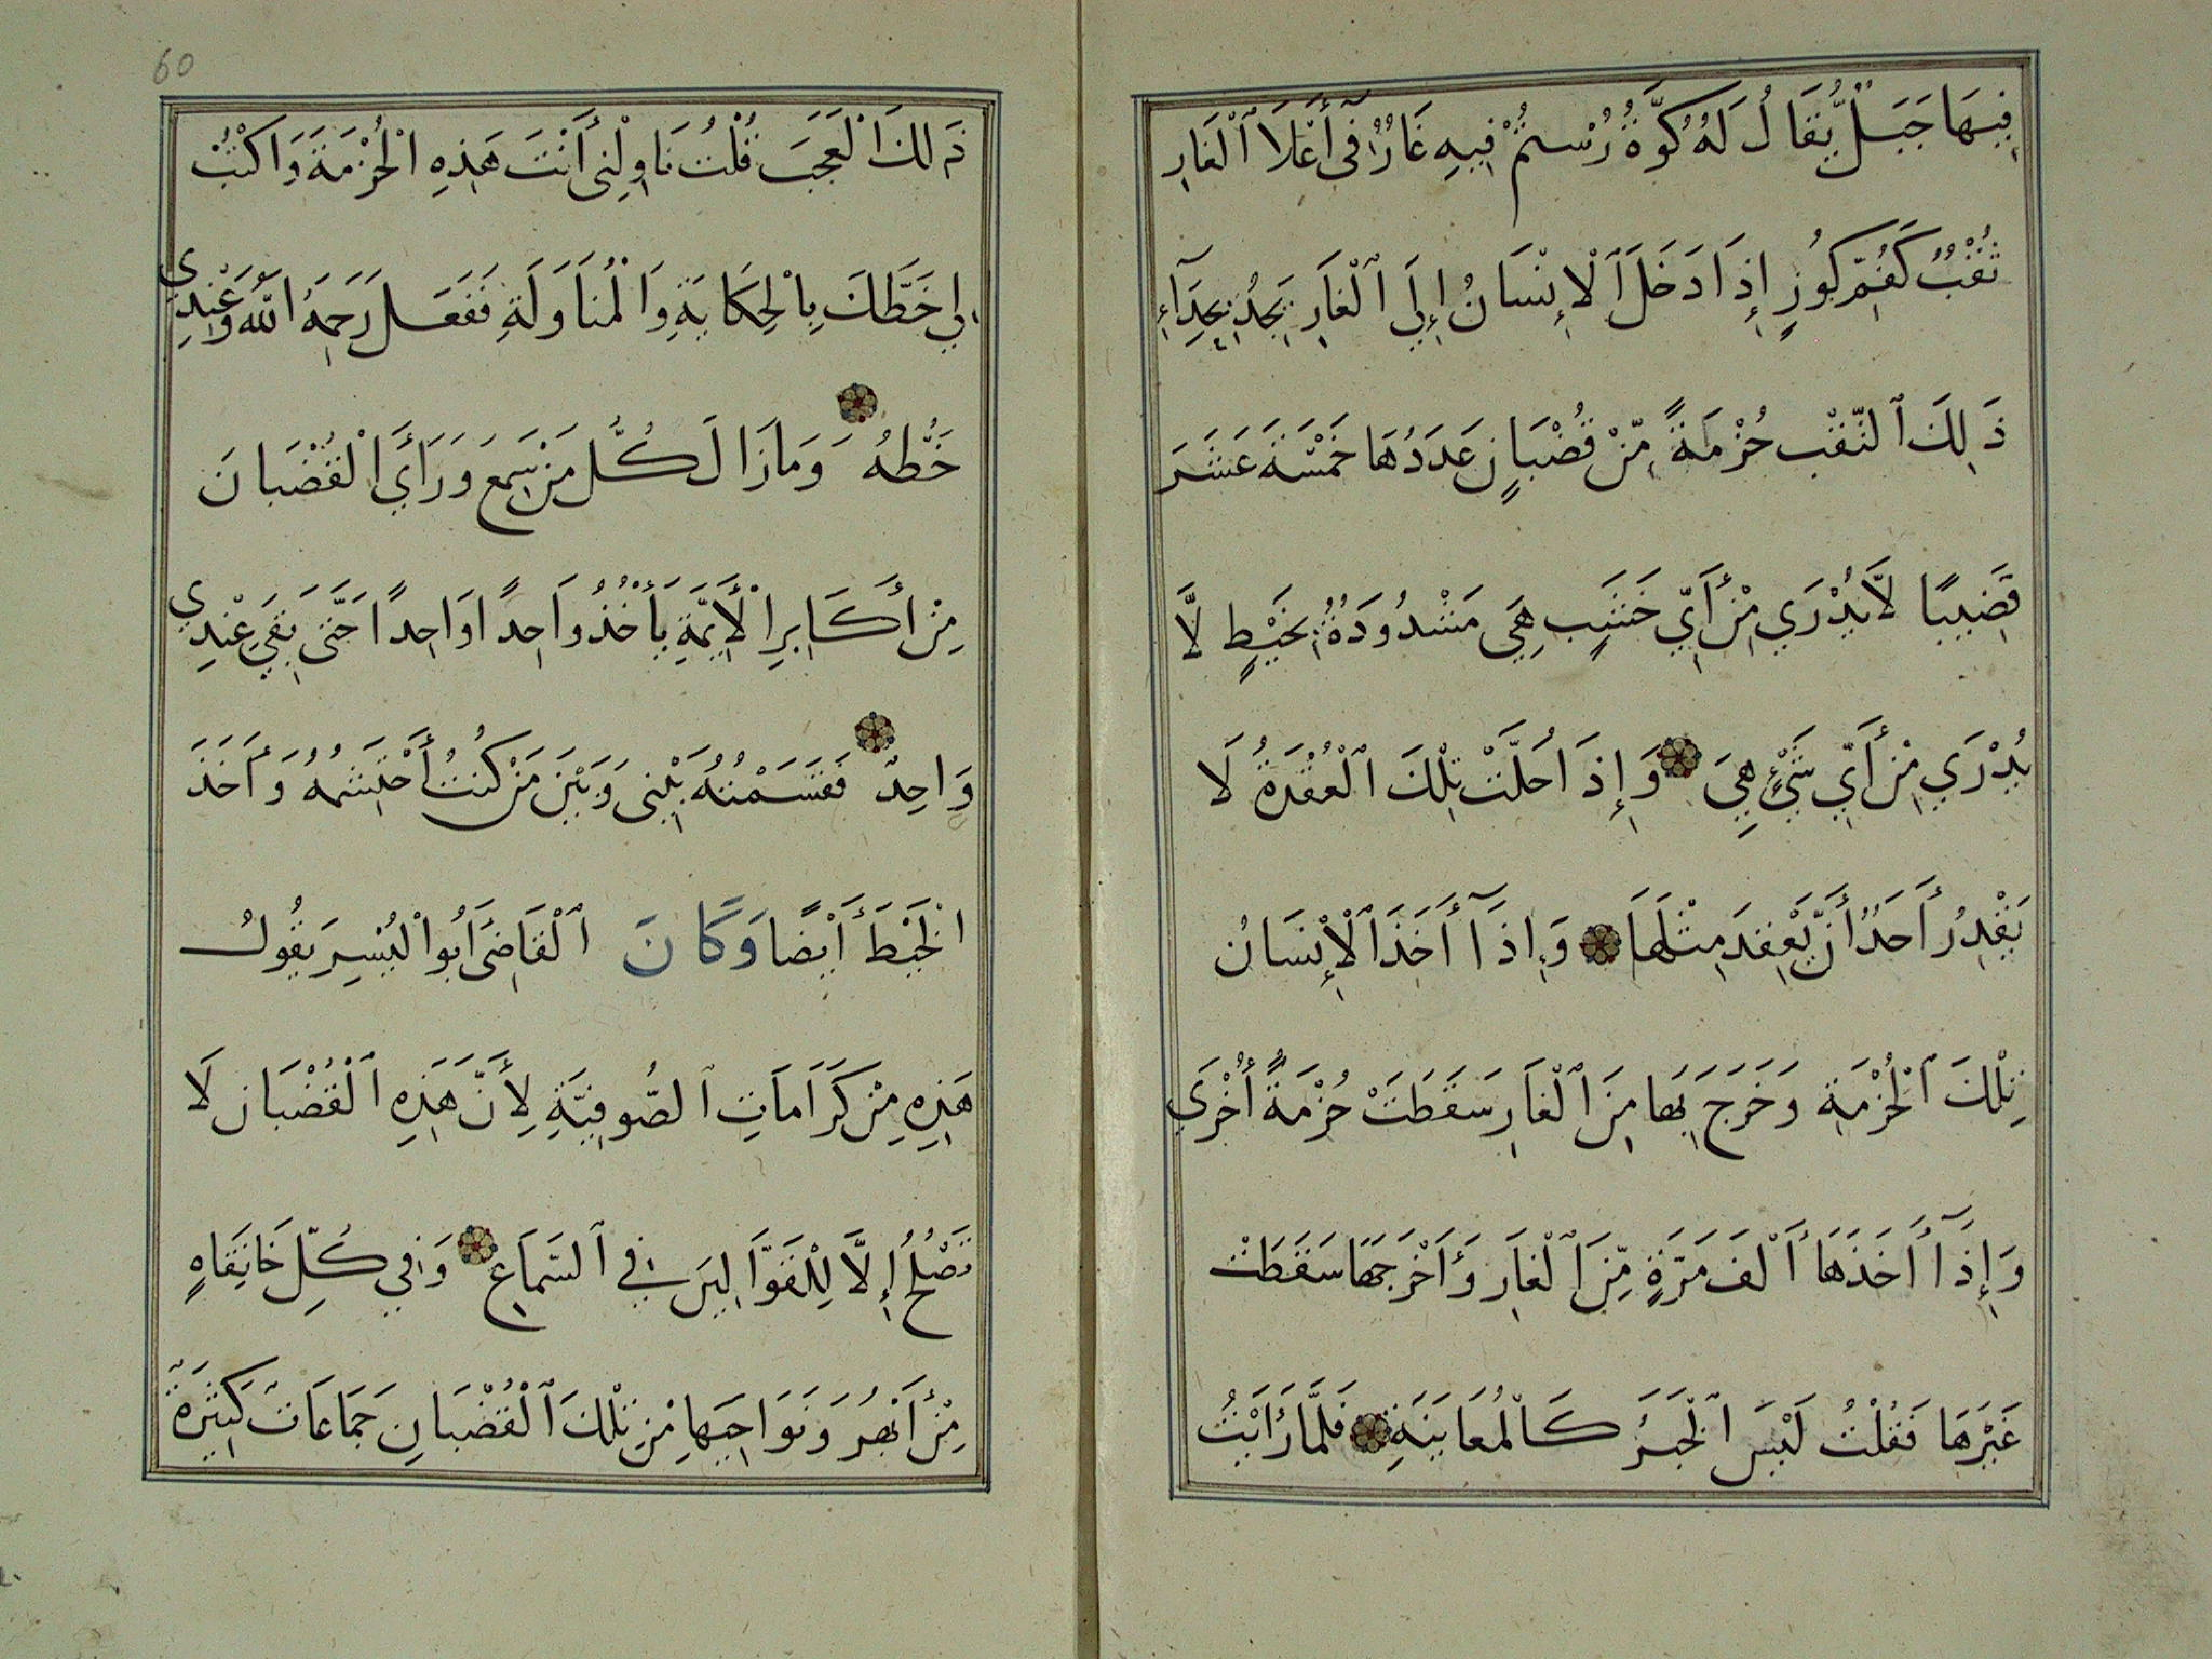 فِيهَا جَبَلٌ يُّقَالُ لَهُ كُوَّةُ رُسْتُمْ فِيهِ غَارٌ فِي أَعْلَا ٱلْغَارِ
ثُقْبٌ كَفُمِّ كُوزٍ إِذَا دَخَلَ ٱلْإِنْسَانُ إِلَي ٱلْغَارِ يَجِدُ بِحِذَآءِ
ذَلِكَ ٱلنَّقْبِ حُزْمَةً مِّنْ قُضْبَانٍ عَدَدُهَا خَمْسَةَ عَشَرَ
قَضِيبًا لَّا يُدْرَي مِنْ أَيِّ خَشَبٍ هِيَ مَشْدُودَةٌ بِخَيْطٍ لَّا
يُدْرَي مِنْ أَيِّ شَيْءٍ هِيَ وَإِذَا حُلَّتْ تِلْكَ ٱلْعُقْدَةُ لَا
يَقْدِرُ أَحَدٌ أَنْ يَّعْقِدَ مِثْلَهَا وَإِذَآ أَخَذَ ٱلْإِنْسَانُ
تِلْكَ ٱلْحُزْمَةِ وَخَرَجَ بِهَا مِنَ ٱلْغَارِ سَقَطَتْ حُزْمَةٌ أُخْرَي
وَإِذَآ أَخَذَهَا أَلْفَ مَرَّةٍ مِّنَ ٱلْغَارِ وَأَخْرَجَهَا سَقَطَتْ
غَيْرُهَا فَقُلْتُ لَيْسَ ٱلْخَبَرُ كَالْمُعَايَنَةِ فَلَمَّا رَأَيْتُ
60
ذَلِكَ الْعَجَبَ قُلْتُ نَاوِلْنِي أَنْتَ هَذِهِ الْحُزْمَةَ وَاكْتُبْ
لِي خَطَّكَ بِالْحِكَايَةِ وَالْمُنَاوَلَةِ فَفَعَلَ رَحِمَهُ اللهُ وَعِنْدِي
خَطُّهُ وَمَا زَالَ كُلُّ مَنْ سَمِعَ وَرَأَيَ الْقُضْبَانَ
مِنْ أَكَابِرِ الْأَيِمَّةِ يَأْخُذُ وَاحِدًا وَاحِدًا حَتَّى بَقِيَ عِنْدِي
وَاحِدٌ فَقَسَمْتُهُ بَيْنِي وَبَيْنَ مَنْ كُنْتُ أَحْتَشِمُهُ وَأَخَذَ
الْخَيْطَ أَيْضًا وَكَانَ ٱلْقَاضِيَ أَبُوا لْيُسِرَ يَقُولُ
هَذِهِ مِنْ كَرَامَاتِ ٱلصُّوفِيَّةِ لِأَنَّ هَذِهِ ٱلْقُضْبَانَ لَا
تَصْلُحُ إِلَّا لِلْقَوَّالِينَ فِي ٱلسَّمَاعِ وَفِي كُلِّ خَانِقَاهٍ
مِنْ أَبْهُرَ وَنَوَاحِيهَا مِنْ تِلْكَ ٱلْقُضْبَانِ جَمَاعَاتٌ كَثِيرَةٌ